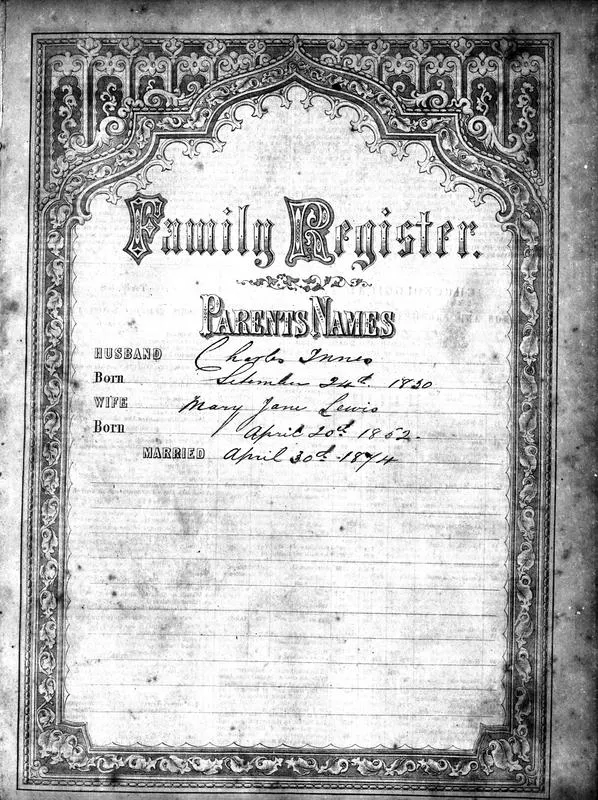 Family Register.
PARENTS NAMES
HUSBAND Charles Innes
Born Setember 24th 1830
WIFE Mary Jane Lewis
Born April 20th 1852.
MARRIED April 30th 1874